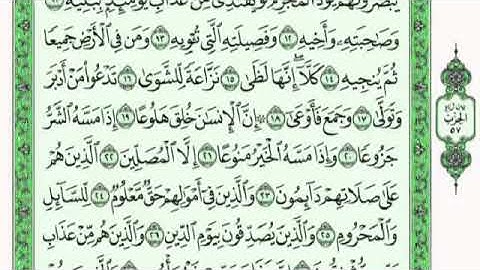 يُبَصَّرُونَهُمْ يَوَدُّ ٱلْمُجْرِمُ لَوْ يَفْتَدِى مِنْ عَذَابِ يَوْمِئِذٍۭ بِبَنِيهِ
وَصَـٰحِبَتِهِۦ وَأَخِيهِ ١٢ وَفَصِيلَتِهِ ٱلَّتِى تُـْٔوِيهِ ١٣ وَمَن فِى ٱلْأَرْضِ جَمِيعًا
ثُمَّ يُنجِيهِ ١٤ كَلَّآ إِنَّهَا لَظَىٰ ١٥ نَزَّاعَةً لِّلشَّوَىٰ ١٦ تَدْعُوا۟ مَنْ أَدْبَرَ
وَتَوَلَّىٰ ١٧ وَجَمَعَ فَأَوْعَىٰٓ ١٨ إِنَّ ٱلْإِنسَـٰنَ خُلِقَ هَلُوعًا ١٩ إِذَا مَسَّهُ ٱلشَّرُّ
جَزُوعًا ٢٠ وَإِذَا مَسَّهُ ٱلْخَيْرُ مَنُوعًا ٢١ إِلَّا ٱلْمُصَلِّينَ ٢٢ ٱلَّذِينَ هُمْ
عَلَىٰ صَلَاتِهِمْ دَآئِمُونَ ٢٣ وَٱلَّذِينَ فِىٓ أَمْوَٰلِهِمْ حَقٌّ مَّعْلُومٌ ٢٤ لِّلسَّآئِلِ
وَٱلْمَحْرُومِ ٢٥ وَٱلَّذِينَ يُصَدِّقُونَ بِيَوْمِ ٱلدِّينِ ٢٦ وَٱلَّذِينَ هُم مِّنْ عَذَابِ
الحزب
٥٧